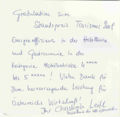 Gratulation zum
Staatspreis Tourismus
Energieeffizienz in der Hotellerie
und Gastronomie in der
Kategorie Hotelbetriebe 4 ****
bis 5 *****! Vielen Dank für
Ihre hervorragende Leistung für
Österreichs Wirtschaft!
Ihr Christoph Leitl